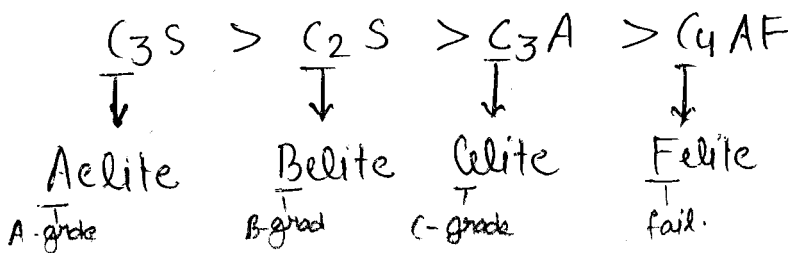 C₃S > C₂S > C₃A > C₄AF
Aelite Belite Celite Felite
A-grade B-grad C-grade fail.